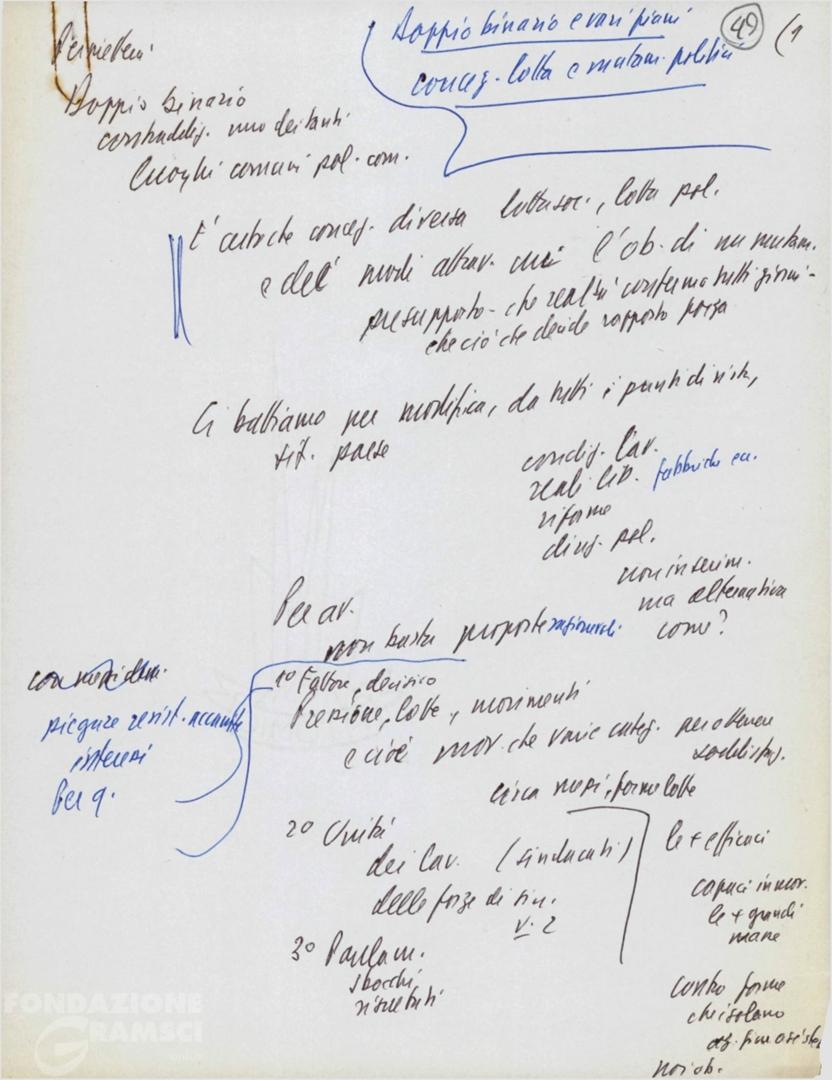 Doppio binario e vari piani
49
(1
concez. lotta e mutam. politici
Doppio binario
contraddiz. uno dei tanti
luoghi comuni pol. com.
E' certo che concez. diversa lotta soc., lotta pol.
e dei modi attrav. cui l'ob. di un mutam.
presupposto - che realtà conferma tutti giorni -
che ciò che decide rapporto forza
Ci battiamo per modifica, da tutti i punti di vista,
sit. paese
condiz. lav.
reali lib. fabbriche ecc.
riforme
direz. pol.
non inserim.
ma alternativa
Per av.
come?
non basta proposte razionali.
piegare resist. accanite
interessi
Per q.
1° Fattore decisivo
Pressione, lotte, movimenti
e cioè mov. che varie categ. per ottenere
soddisfaz.
circa mezzi, forme lotte
2° Unità
dei lav. (sindacati)
delle forze di sin.
v. 2
le + efficaci
capaci in mov.
le + grandi
masse
3° Parlam.
sbocchi
risultati
contro forme
che isolano
noi ob.
FONDAZIONE
GRAMSCI